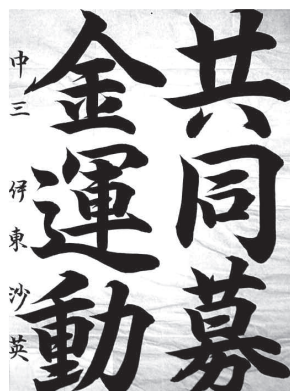 共同募
金運動
中三 伊東沙英